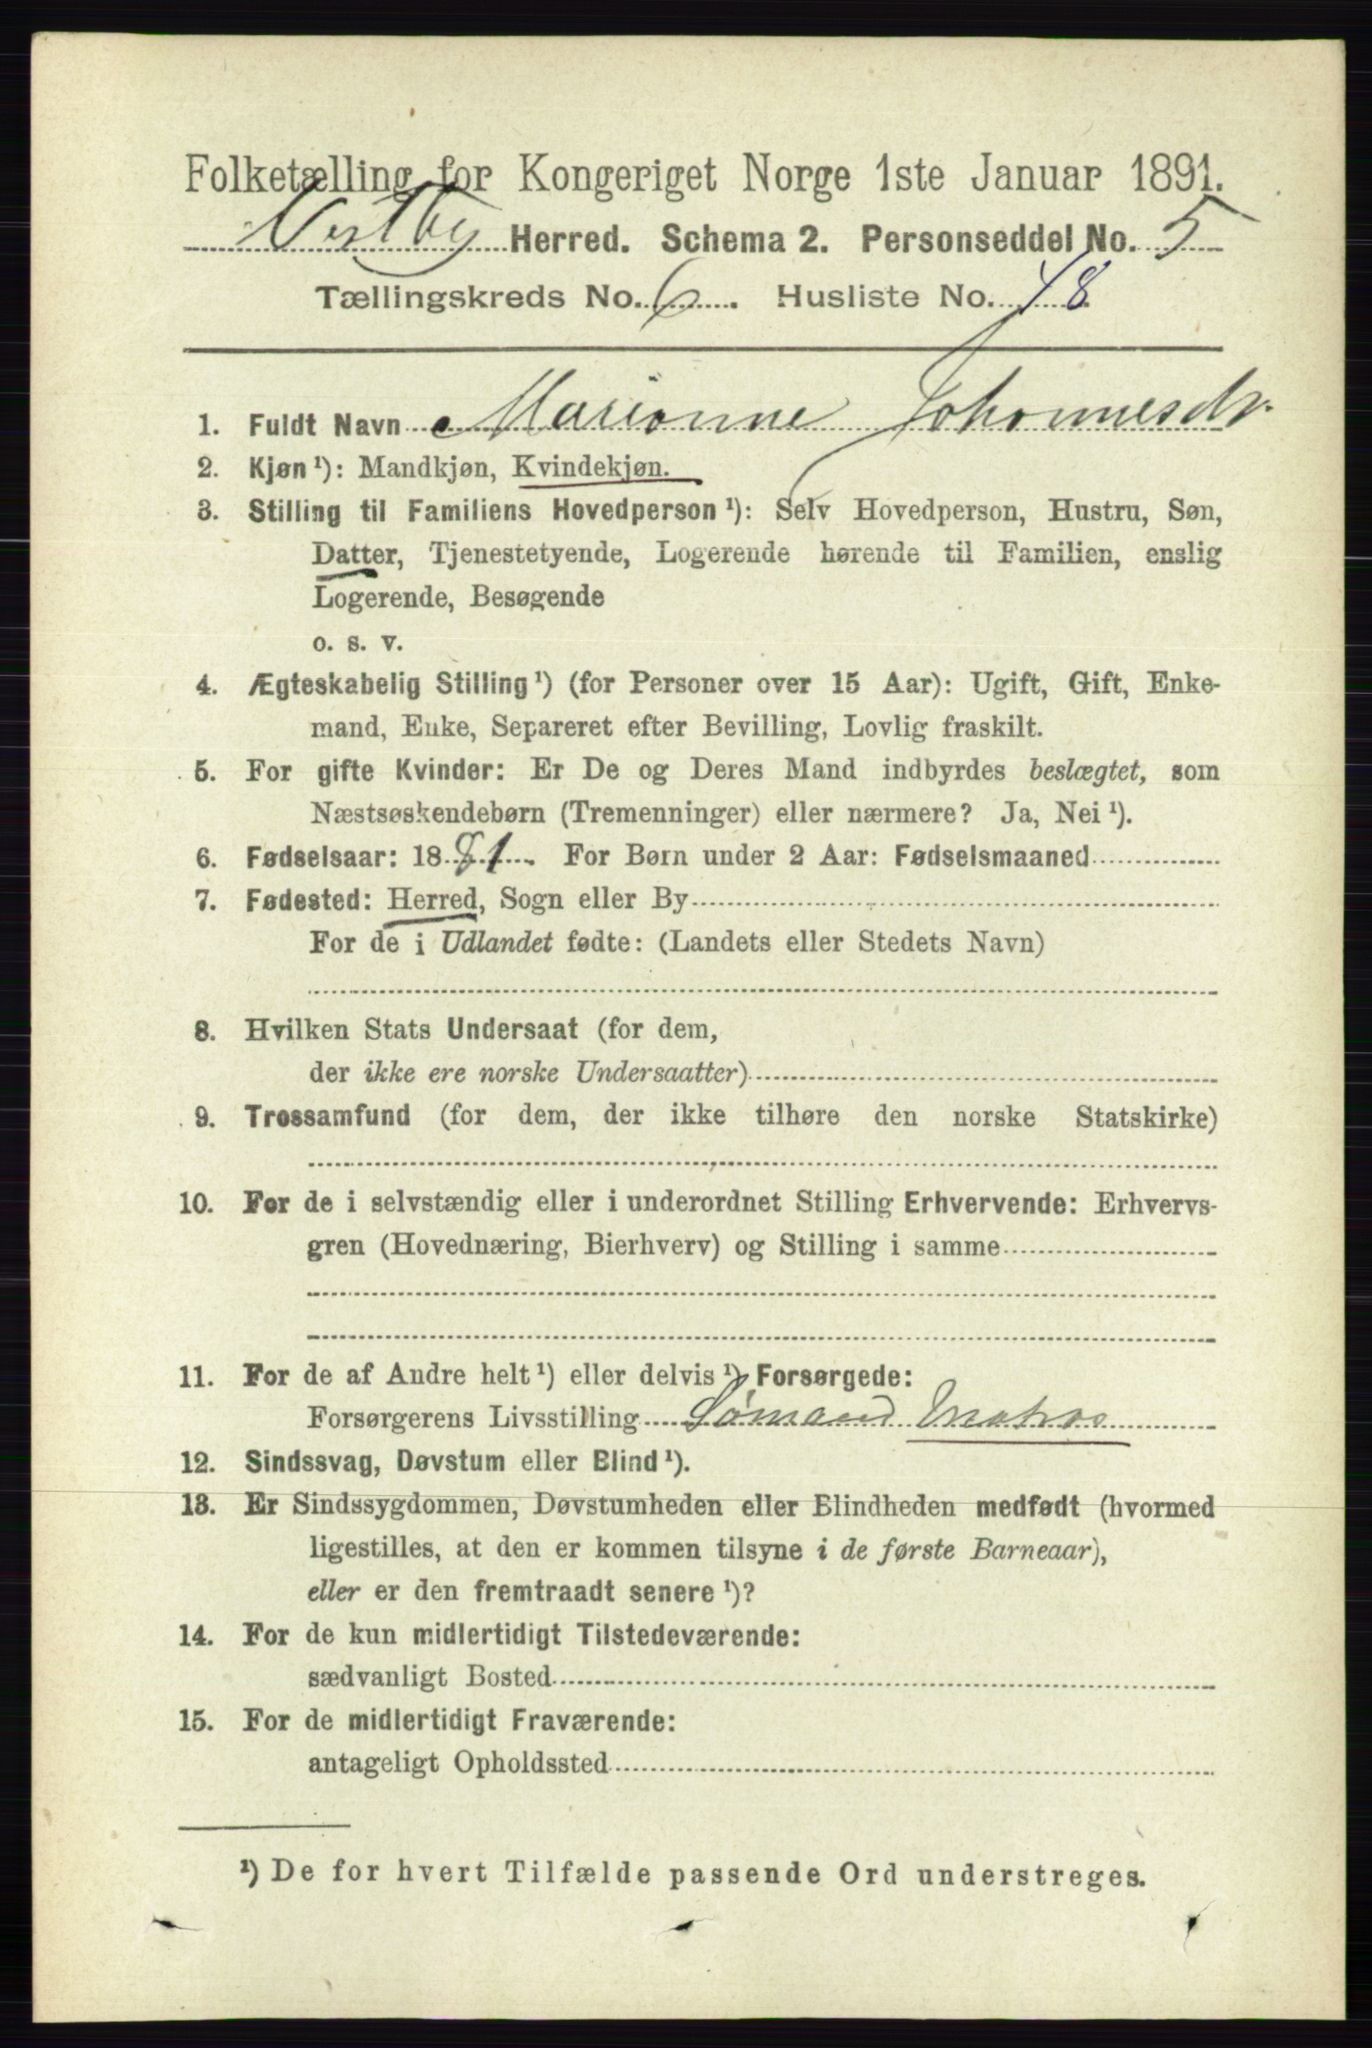 Folketælling for Kongeriget Norge 1ste Januar 1891.
Vestby Herred. Schema 2. Personseddel No. 5
Tællingskreds No. 6. Husliste No. 48
1. Fuldt Navn Marianne Johannesdr.
2. Kjøn ¹): Mandkjøn, Kvindekjøn.
3. Stilling til Familiens Hovedperson ¹): Selv Hovedperson, Hustru, Søn,
Datter, Tjenestetyende, Logerende hørende til Familien, enslig
Logerende, Besøgende
o. s. v.
4. Ægteskabelig Stilling ¹) (for Personer over 15 Aar): Ugift, Gift, Enke-
mand, Enke, Separeret efter Bevilling, Lovlig fraskilt.
5. For gifte Kvinder: Er De og Deres Mand indbyrdes beslægtet, som
Næstsøskendebørn (Tremenninger) eller nærmere? Ja, Nei ¹).
6. Fødselsaar: 1881. For Børn under 2 Aar: Fødselsmaaned
7. Fødested: Herred, Sogn eller By
For de i Udlandet fødte: (Landets eller Stedets Navn)
8. Hvilken Stats Undersaat (for dem,
der ikke ere norske Undersaatter)
9. Trossamfund (for dem, der ikke tilhøre den norske Statskirke)
10. For de i selvstændig eller i underordnet Stilling Erhvervende: Erhvervs-
gren (Hovednæring, Bierhverv) og Stilling i samme
11. For de af Andre helt ¹) eller delvis ¹) Forsørgede:
Forsørgerens Livsstilling Sømand Matros
12. Sindssvag, Døvstum eller Blind ¹).
13. Er Sindssygdommen, Døvstumheden eller Blindheden medfødt (hvormed
ligestilles, at den er kommen tilsyne i de første Barneaar),
eller er den fremtraadt senere ¹)?
14. For de kun midlertidigt Tilstedeværende:
sædvanligt Bosted
15. For de midlertidigt Fraværende:
antageligt Opholdssted
¹) De for hvert Tilfælde passende Ord understreges.